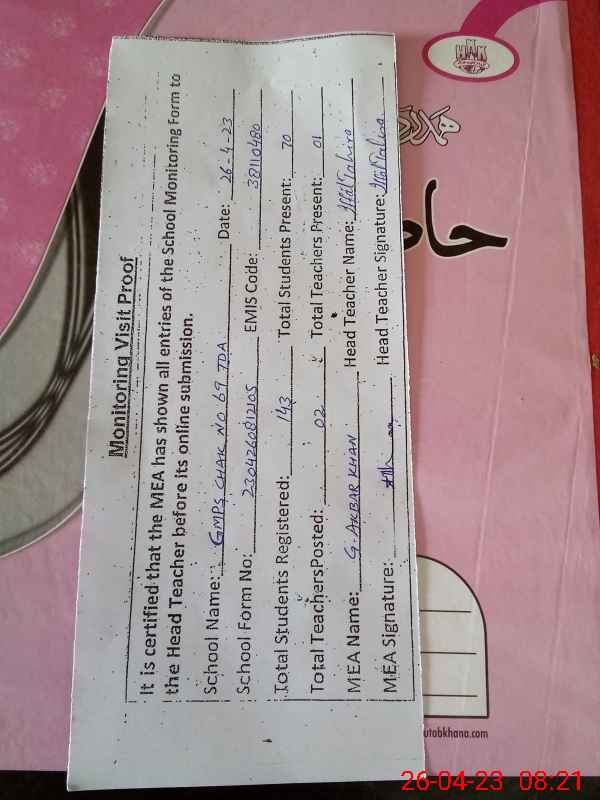 Monitoring Visit Proof
It is certified that the MEA has shown all entries of the School Monitoring Form to
the Head Teacher before its online submission.
School Name: GMPS CHAK NO 69 TDA Date: 26-4-23
School Form No: 2304260812105 EMIS Code: 38110480
Total Students Registered: 143 Total Students Present: 70
Total TeachersPosted: 02 Total Teachers Present: 01
MEA Name: G. AKBAR KHAN Head Teacher Name:
MEA Signature: Head Teacher Signature:
HNK
utabkhana.com
26-04-23 08:21